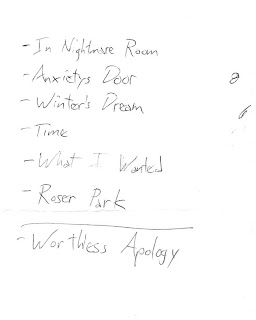 - In Nightmare Room
- Anxietys Door 8
- Winter's Dream 6
- Time
- What I Wanted
- Roser Park
- Worthless Apology